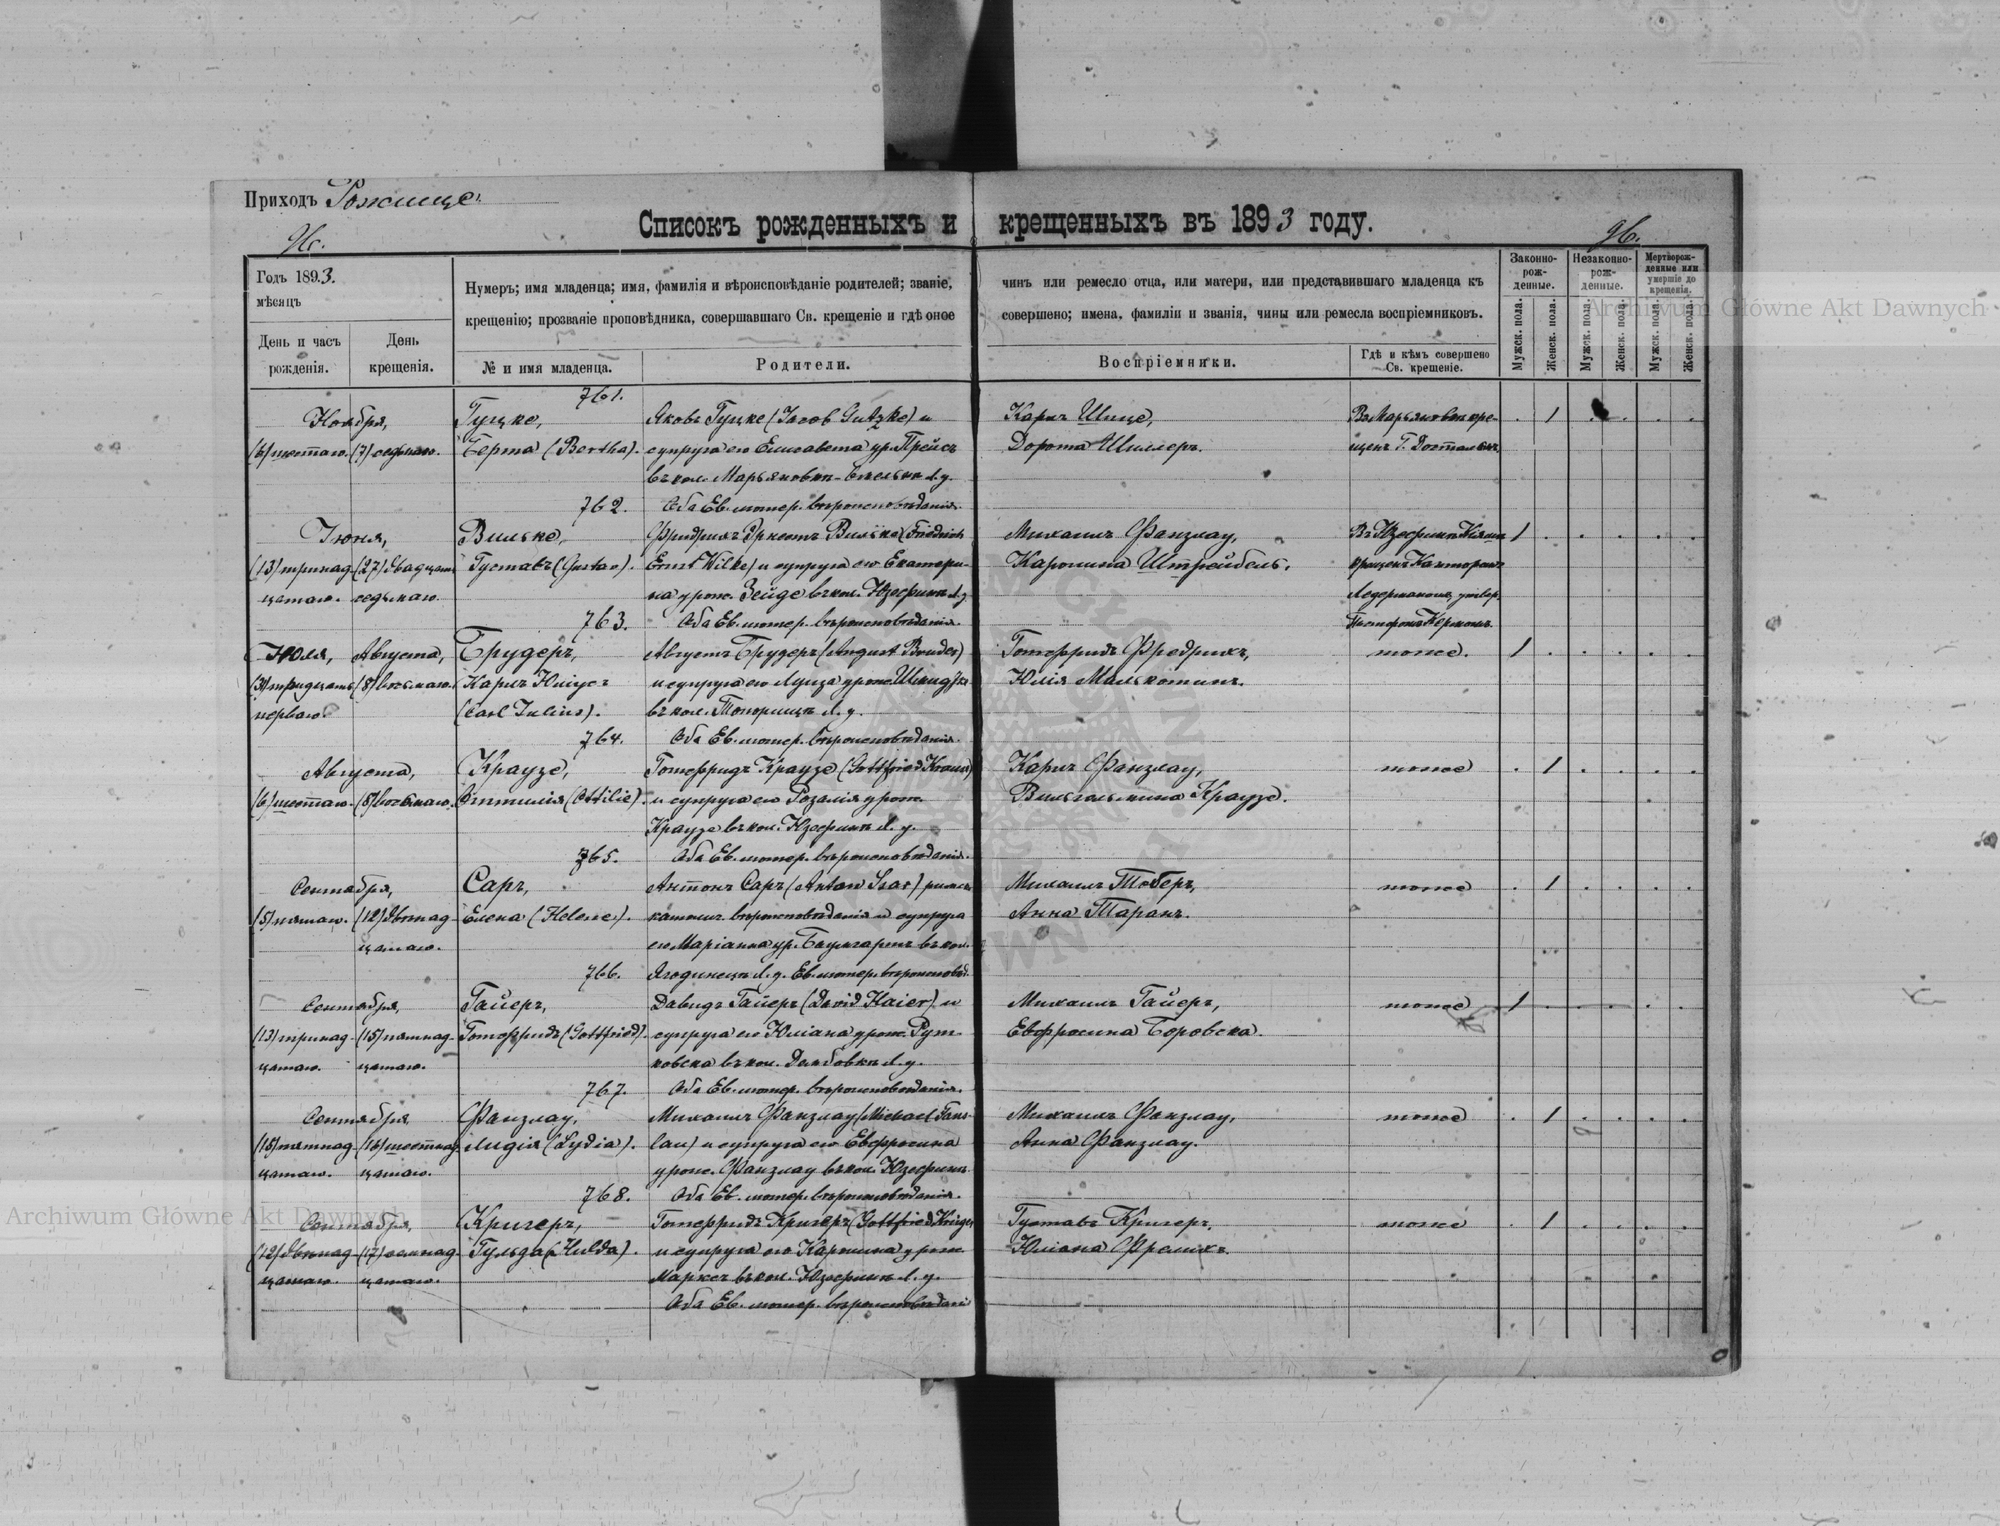 Приходъ Рожище.
Списокъ рожденныхъ и крещенныхъ въ 1893 году.
96. 96.
Годъ 1893.
мѣсяцъ
День и часъ рожденія.
День крещенія.
Нумеръ; имя младенца; имя, фамилія и вѣроисповѣданіе родителей; званіе, чинъ или ремесло отца, или матери, или представившаго младенца къ
крещенію; прозваніе проповѣдника, совершавшаго Св. крещеніе и гдѣ оное совершено; имена, фамиліи и званія, чины или ремесла воспріемниковъ.
№ и имя младенца.
Родители.
Воспріемники.
Гдѣ и кѣмъ совершено Св. крещеніе.
Законно-рожденные.
Незаконно-рожденные.
Мертворожденные или умершіе до крещенія.
Мужск. пола. Женск. пола. Мужск. пола. Женск. пола. Мужск. пола. Женск. пола.
761.
Ноября, Гуцке, Яковъ Гуцке (Jacob Gutzke) и Карлъ Шице, 1
(6) шестаго. (7) седьмаго. Берта (Bertha). супруга его Елисавета ур. Прейсъ Дорота Шиллеръ.
въ кол. Марьяновкѣ Л. у.
762. Оба Ев. лютер. вѣроисповѣданія.
Іюня, Вильке, Фридрихъ Эрнестъ Вильке (Friedrich Михаилъ Фанзлау, 1
(13) тринад- (27) двадцать Густавъ (Gustav). Ernst Wilke) и супруга его Екатери- Каролина Штрейбель.
цатаго. седьмаго на урож. Зейде въ кол. Юзефинъ Л. у.
763. Оба Ев. лютер. вѣроисповѣданія.
Іюля, Августа, Брудеръ, Августъ Брудеръ (August Bruder) Готфридъ Фредрихъ, тоже. 1
(31) тридцать (8) восьмаго. Карлъ Юліусъ и супруга его Луиза урож. Юлія Малькотинъ.
перваго. (Carl Julius). въ кол. Топорищъ Л. у.
764. Оба Ев. лютер. вѣроисповѣданія.
Августа, Краузе, Готфридъ Краузе (Gottfried Krause) Карлъ Фанзлау, тоже 1
(6) шестаго. (8) восьмаго. Оттилія (Ottilie). и супруга его Розалія урож. Вильгельмина Краузе.
Краузе въ кол. Юзефинъ Л. у.
765. Оба Ев. лютер. вѣроисповѣданія.
Сентября, Саръ, Антонъ Саръ (Anton Sar) римск. Михаилъ Тоберъ, тоже 1
(5) пятаго. (12) двѣнад- Елена (Helene). католич. вѣроисповѣданія и супруга Анна Таранъ.
цатаго. его Маріанна ур. Баумгартъ въ кол.
766. Ягодинецъ Л. у. Ев. лютер. вѣроисповѣд.
Сентября, Гайеръ, Давидъ Гайеръ (David Haier) и Михаилъ Гайеръ, тоже 1
(13) тринад- (15) пятнад- Готфридъ (Gottfried). супруга его Юліана урож. Рут- Евфросина Боровска.
цатаго. цатаго. ковска въ кол. Дембовкѣ Л. у.
767. Оба Ев. лютер. вѣроисповѣданія.
Сентября Фанзлау, Михаилъ Фанзлау (Michael Fans- Михаилъ Фанзлау, тоже 1
(15) пятнад- (16) шестнад- Лидія (Lydia). lau) и супруга его Евфросина Анна Фанзлау.
цатаго. цатаго. урож. Фанзлау въ кол. Юзефинъ
768. Оба Ев. лютер. вѣроисповѣданія.
Сентября, Кригеръ, Готфридъ Кригеръ (Gottfried Krüger) Густавъ Кригеръ, тоже 1
(12) двѣнад- (17) семнад- Гульда (Hulda). и супруга его Каролина урож. Юліана Фрелихъ.
цатаго. цатаго. Марксъ въ кол. Юзефинъ Л. у.
Оба Ев. лютер. вѣроисповѣдані
Archiwum Główne Akt Dawnych
Archiwum Główne Akt Dawnych